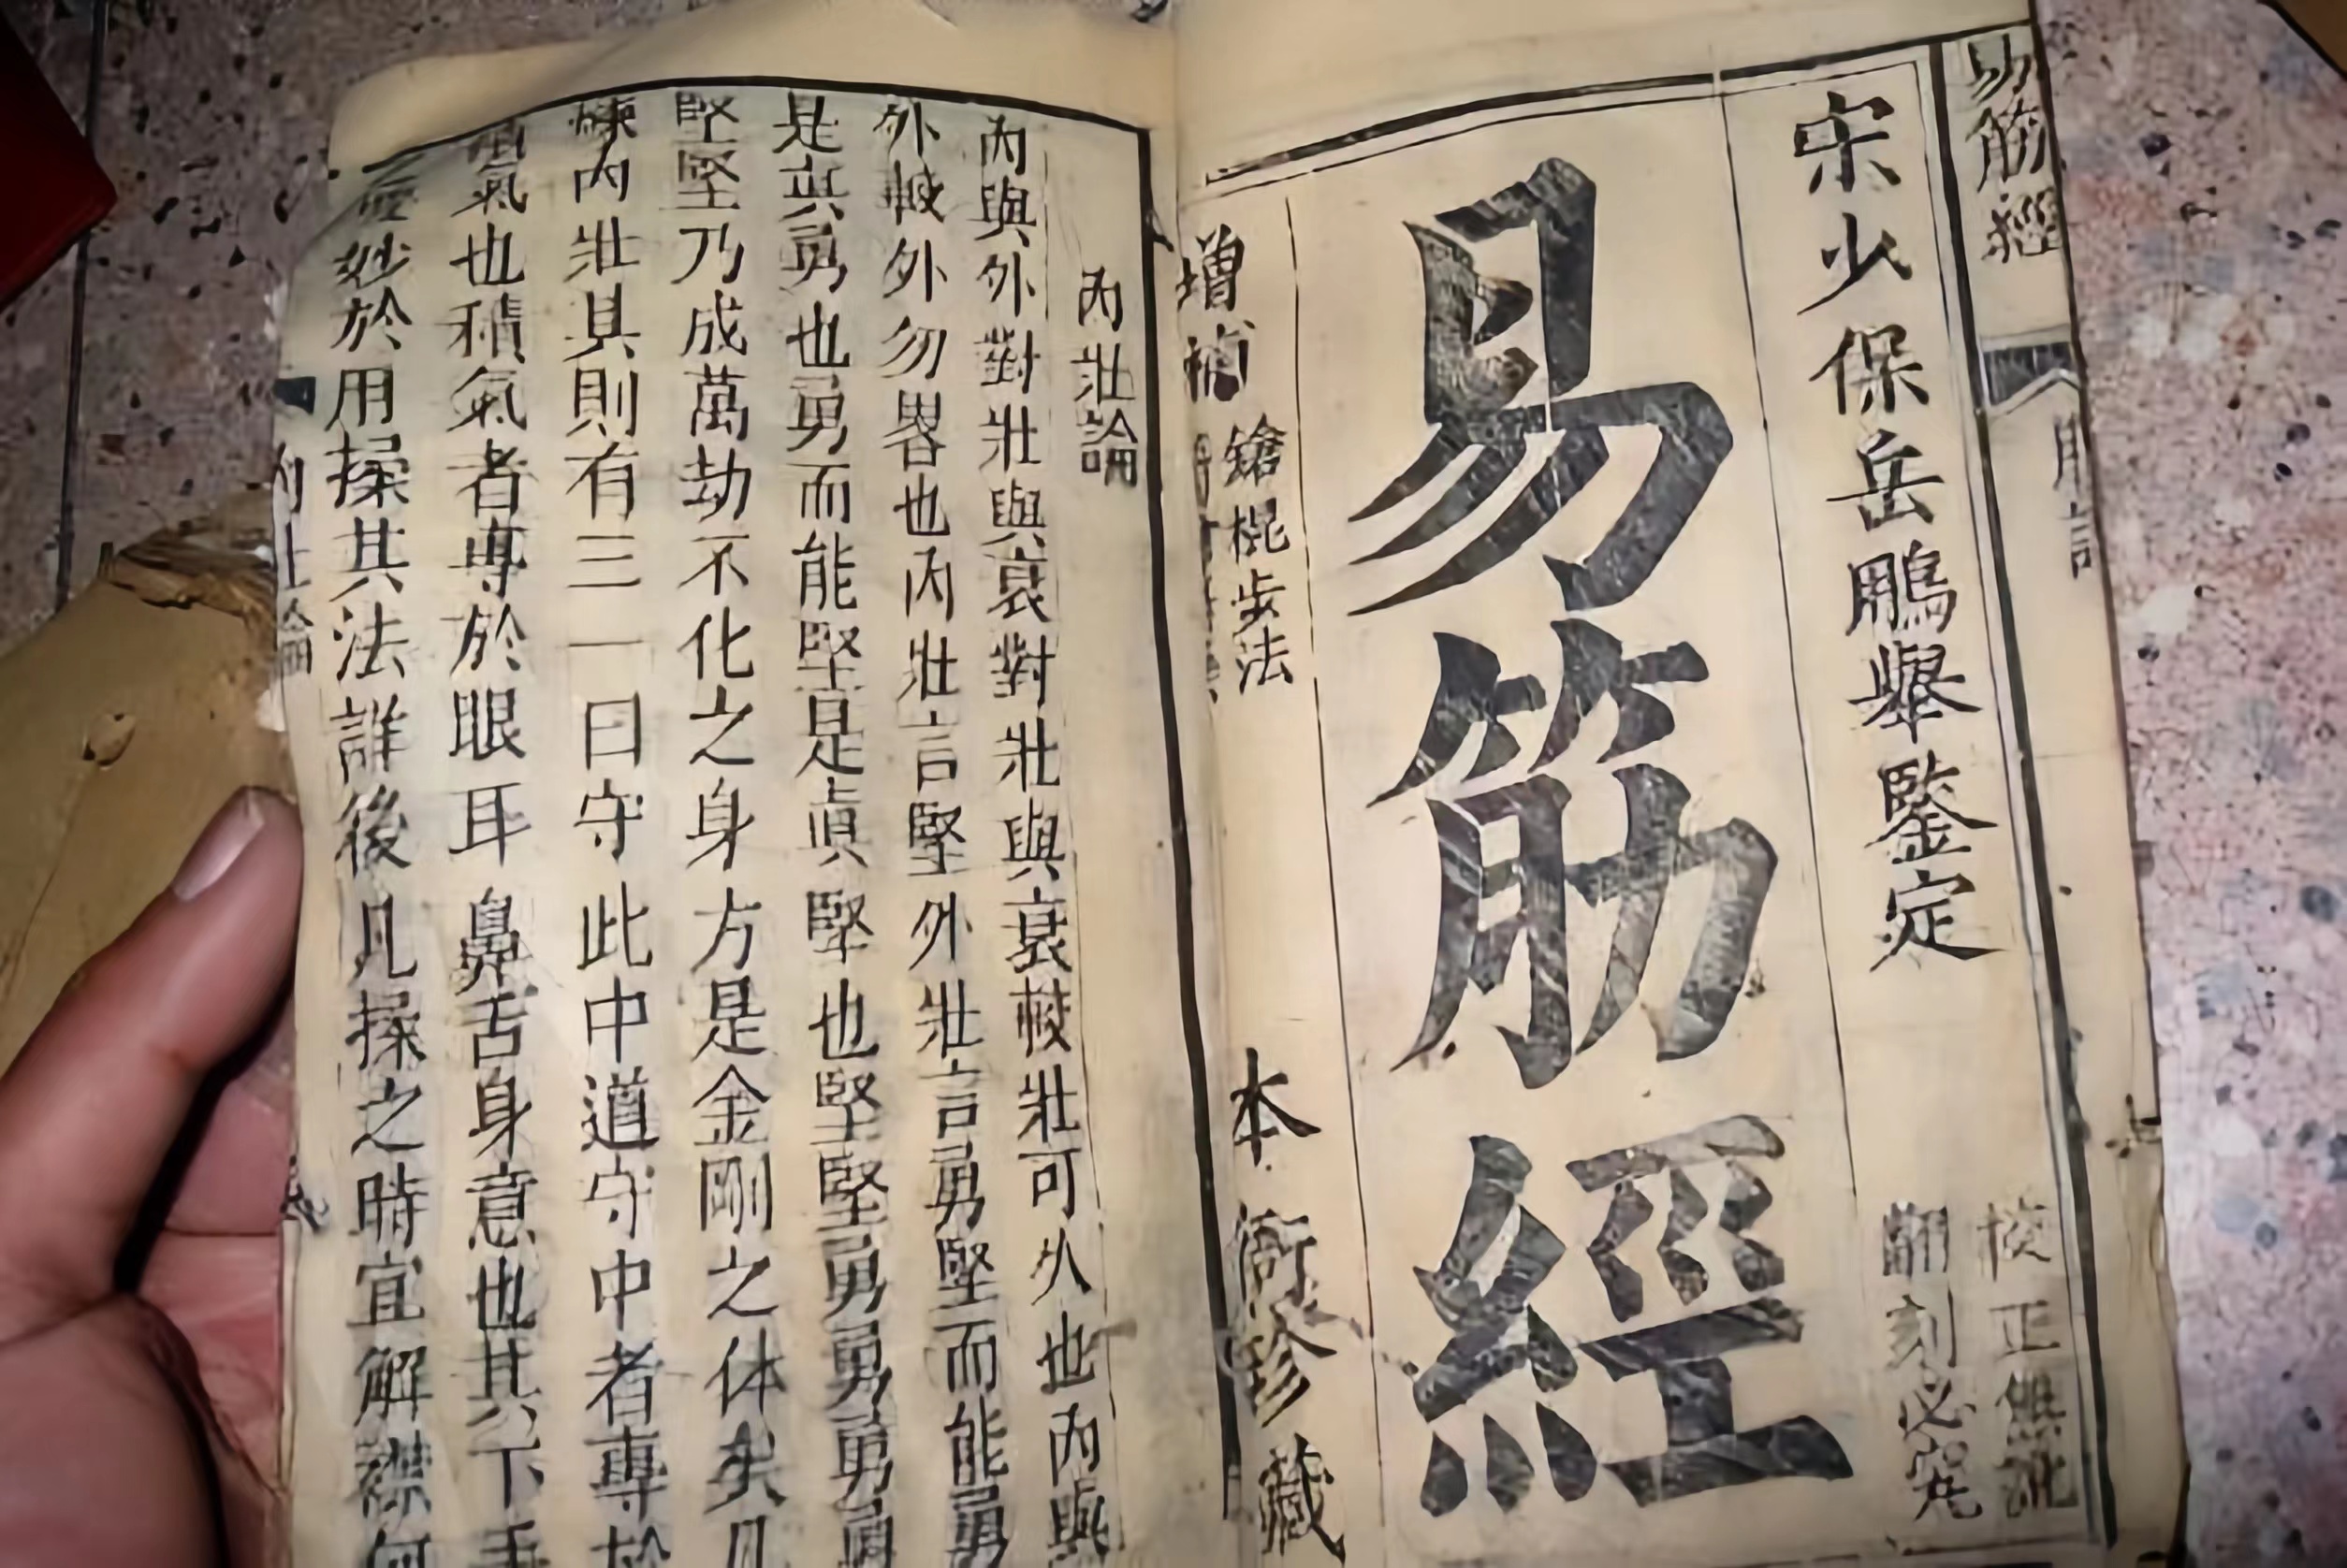 易筋經
宋少保岳鵬舉鑒定
校正無訛
翻刻必究
易筋經
增補
鎗棍步法
本衙珍藏
內壯論
內與外對壯與衰對壯與衰較壯可久也內與
外較外勿畧也內壯言堅外壯言勇堅而能勇
是真勇也勇而能堅是真堅也堅堅勇勇勇勇
堅堅乃成萬劫不化之身方是金剛之体矣凡
煉內壯其則有三一曰守此中道守中者專於
積氣也積氣者專於眼耳鼻舌身意也其下手
妙於用揉其法詳後凡揉之時宜解襟
內壯論